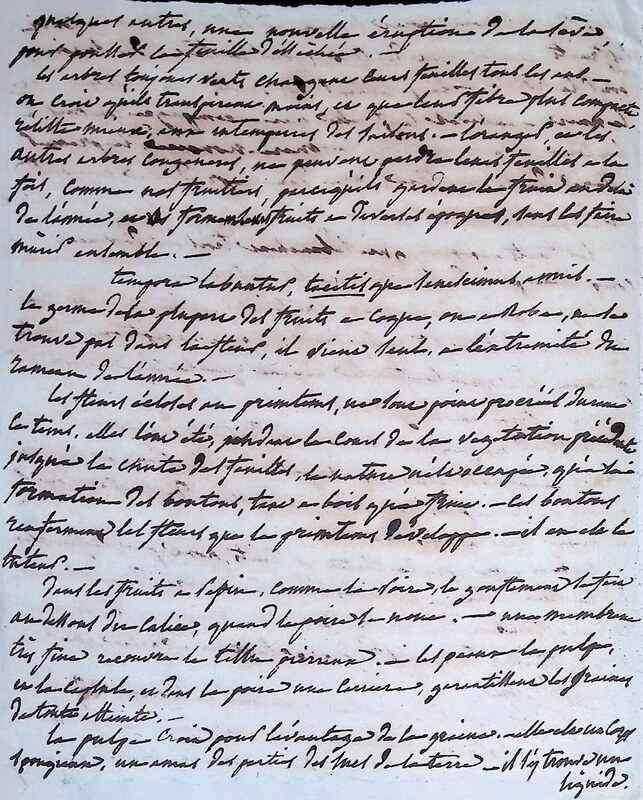 quelques autres, une nouvelle éruption de la sève
pour pousser la feuille desséchée. —
les arbres toujours verts changent leurs feuilles tous les ans. —
on croit qu'ils transpirent moins, et que leur fibre plus compacte
résiste mieux, aux intemperies des saisons. — l'oranger, et les
autres arbres congeneres, ne peuvent perdre leurs feuilles a la
fois, comme nos fruitiers, parcequ'ils gardent le fruit au dela
de l'année, et forment leurs fruits a diverses époques, sans les faire
mûrir ensemble. —
tempora labuntur, tacitis que senescimus annis. —
le germe de la plupart des fruits a coque, ou a Robe, ne se
trouve pas dans la fleur, il vient seul, a l'extremité du
rameau de l'année. —
les fleurs écloses au printems, ne sont point procréées durant
ce tems. elles l'ont été, pendant le cours de la vegetation précédente
jusqu'à la chute des feuilles. la nature n'est occupée, qu'à la
formation des boutons, tant a bois qu'a fruit. — les boutons
renferment les fleurs que le printems développe. — il en est le
tuteur. —
Dans les fruits a Pepin, comme la Poire, le gonflement se fait
au dessous du calice, quand la poire se noue. — une membrane
très fine recouvre le tissu pierreux. — les peaux la pulpe,
et la capsule, et dans la poire une carriere, garantissent les graines
de toute atteinte. —
la pulpe croit pour l'avantage de la graine. — elle est un corps
spongieux, un amas des parties des sucs de la terre — il s'y trouve un
liquide.